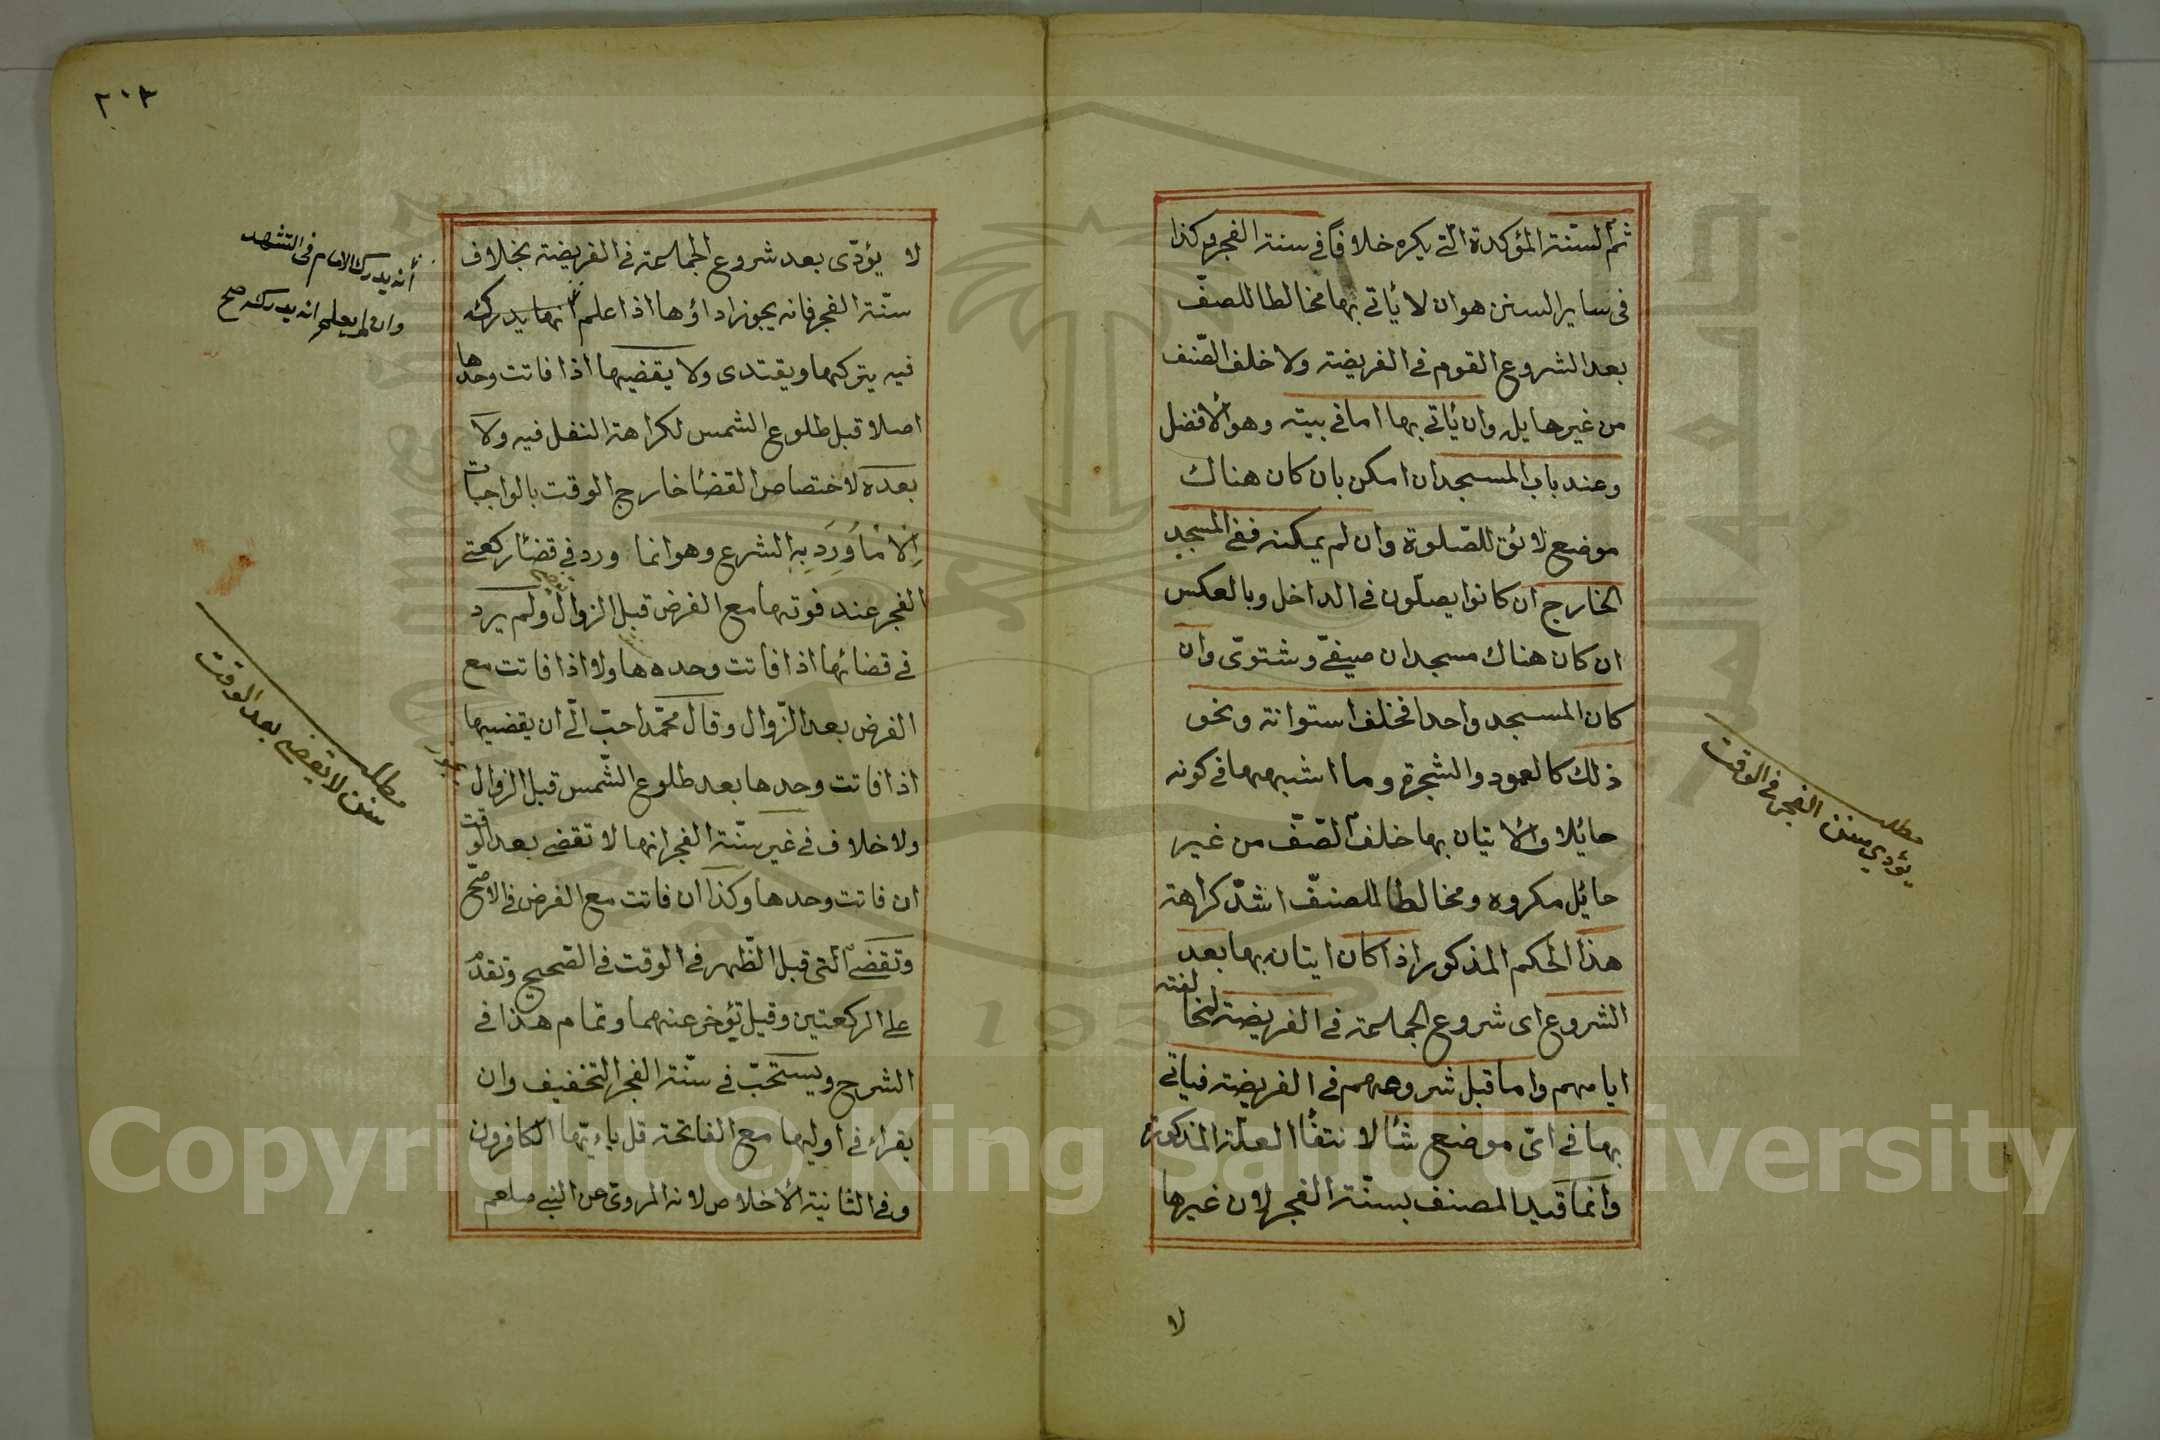 ثم السّنة المؤكدة الّتي يكره خلافها في سنة الفجر وكذا
في ساير السنن هو ان لا يأتي بها مخالطا للصفّ
بعد الشروع القوم في الفريضة ولا خلف الصّف
من غير حايل وان يأتي بها اما في بيته وهو الافضل
وعند باب المسجد ان امكن بان كان هناك
موضع لائق للصّلوة وان لم يمكنه ففي المسجد
الخارج ان كانوا يصلّون في الداخل وبالعكس
ان كان هناك مسجدان صيفيّ وشتويّ وان
كان المسجد واحدا فخلف استوانة ونحو
ذلك كالعمود والشجرة وما اشبههما في كونه
حائلا والاتيان بها خلف الصّفّ من غير
حائيل مكروه ومخالطا للصفّ اشدّ كراهة
هذا الحكم المذكور اذا كان ايتان بها بعد
الشروع اى شروع الجماعة في الفريضة لمخالفته
ايامهم واما قبل شروعهم في الفريضة فيأتي
بها في ايّ موضع شا لانتفا العلّة المذكورة
وانما قيد المصنف بسنّة الفجر لان غيرها
لا
مطلب
يؤدي سنن الفجر في الوقت
٢٠٣
لا يؤدّى بعد شروع الجماعة في الفريضة بخلاف
سنّة الفجر فانه يجوز اداؤها اذا علم انهما يدركه
فيه يتركها ويقتدى ولا يقضيها اذا فاتت وحدها
اصلا قبل طلوع الشمس لكراهة النفل فيه ولا
بعده لاختصاص القضا خارج الوقت بالواجبات
اِلّا مَا وَرَدَ بِهِ الشرع وهو انما ورد في قضا ركعتي
الفجر عند فوتهما مع الفرض قبل الزوال ولم يرد
في قضائها اذا فاتت وحده ها ولا اذا فاتت مع
الفرض بعد الزّوال وقال محمّد احبّ الّي ان يقضيها
اذا فاتت وحدها بعد طلوع الشّمس قبل الزوال
ولا خلاف في غير سنّة الفجر انها لا تقضى بعد الوقت
ان فاتت وحدها وكذا ان فاتت مع الفرض في الاصحّ
وتقضى التى قبل الظّهر في الوقت في الصّحيح وتقدّم
على الركعتين وقيل تؤخر عنهما وتمام هذا في
الشرح ويستحبّ في سنّة الفجر التخفيف وان
يقراء في اوليها مع الفاتحة قل ياءيّها الكافرون
وفي الثانية الاخلاص لانه المروىّ عن النبي صلعم
أنه يدرك الامام في التشهد
وان لم يعلم انه يدركه صح
مطلب
سنن لا يقضى بعد الوقت
Copyright © King Saud University